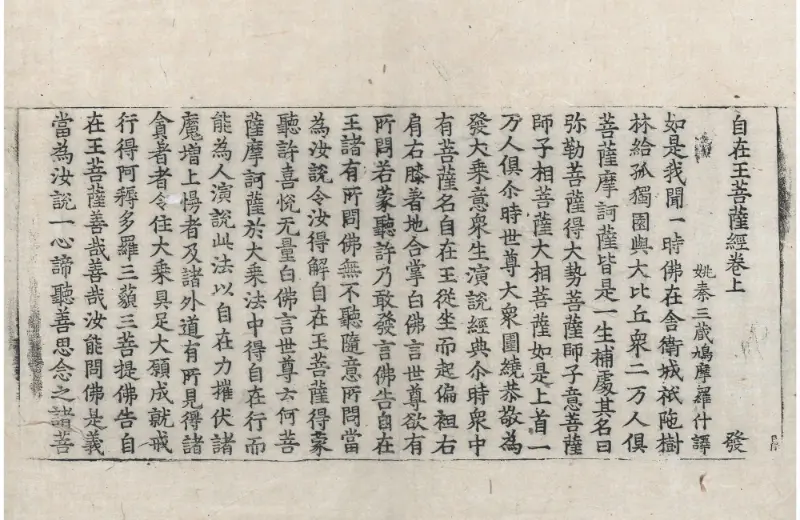 自在王菩薩經卷上 發
姚秦三藏鳩摩羅什譯
如是我聞一時佛在舍衛城祇陁樹
林給孤獨園與大比丘衆二万人俱
菩薩摩訶薩皆是一生補處其名曰
弥勒菩薩得大势菩薩師子意菩薩
師子相菩薩大相菩薩如是上首一
万人俱尒時世尊大衆圍繞恭敬為
發大乗意衆生演說經典尒時衆中
有菩薩名自在王從坐而起偏袒右
肩右膝着地合掌白佛言世尊欲有
所問若蒙聽許乃敢發言佛告自在
王諸有所問佛無不聽隨意所問當
為汝說令汝得解自在王菩薩得蒙
聽許喜悅无量白佛言世尊云何菩
薩摩訶薩於大乗法中得自在行而
能為人演說此法以自在力摧伏諸
魔增上慢者及諸外道有所見得諸
貪著者令住大乗具足大願成就戒
行得阿耨多羅三藐三菩提佛告自
在王菩薩善哉善哉汝能問佛是義
當為汝說一心諦聽善思念之諸菩